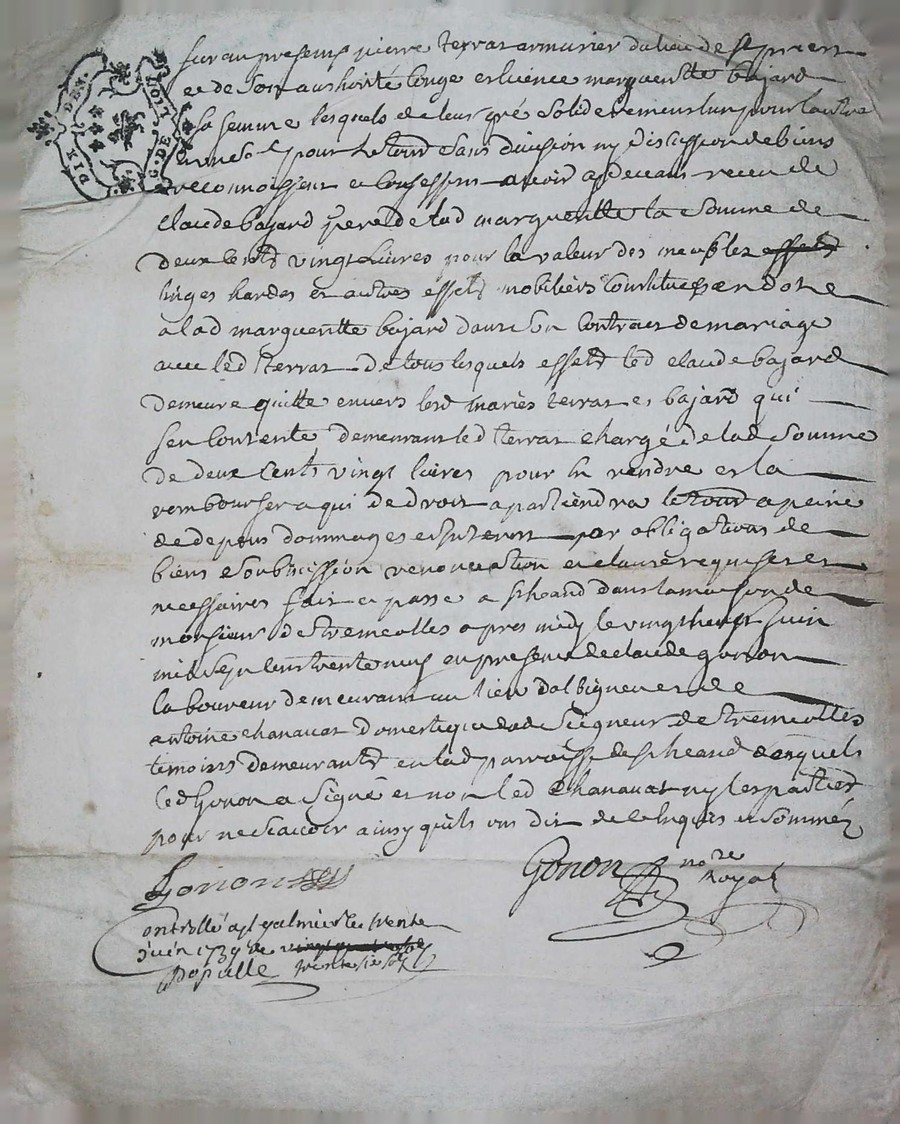 G. DE LION
DIX DEN.
fut au present pierre terrat armurier du lieu de st priest
et de son authorité longe et licence margueritte bajard
sa femme lesquels de leur gré solidairement lun pour lautre
pour le tout sans division ny discussion de biens
reconnoissent et confessent avoir cy devant receu de
claude bajard pere de lad margueritte la somme de
deux cents vingt livres pour la valeur des meubles effets
linges hardes et autres effets mobiliers constitues en dot
a lad margueritte bajard dans son contract de mariage
avec led terrat de tous lesquels effets led claude bajard
demeure quitte envers lesd mariés terrat et bajard qui
sen contente demeurant led terrat chargé de lad somme
de deux cents vingt livres pour la rendre et la
rembourser a qui de droit apartiendra le tout a peine
de depens dommages et interets par obligations de
biens soubmission renonciation et clause requises et
necessaires fait et passé a st heand dans la maison de
monsieur de tremeolles apres midy le vingt neuf juin
mil sept cents trente neuf en presence de claude gonon
laboureur demeurant au lieu dalbigneu et de
antoine chanavat domestique dud seigneur de tremeolles
temoins demeurants en lad parroisse de st heand desquels
led Gonon a signé et non led Chanavat ny les parties
pour ne scavoir ainsy quils ont dit de ce enquis et sommés
Gonon
Gonon nore
Royal
Controllé a st galmier le trente
juin 1739 Rc vingt quatre sols
trente six sols